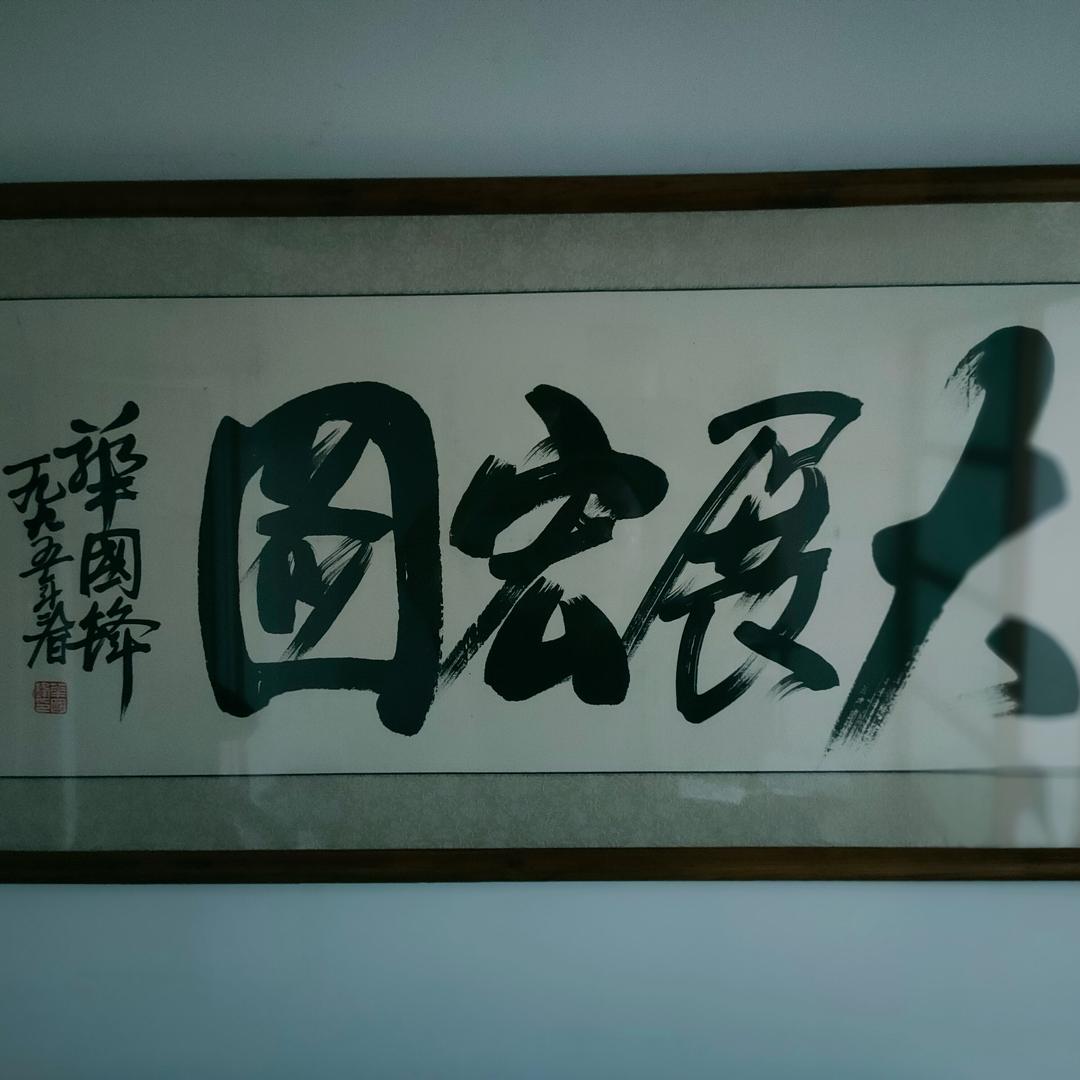 大展宏圖
華國鋒
一九九五年春